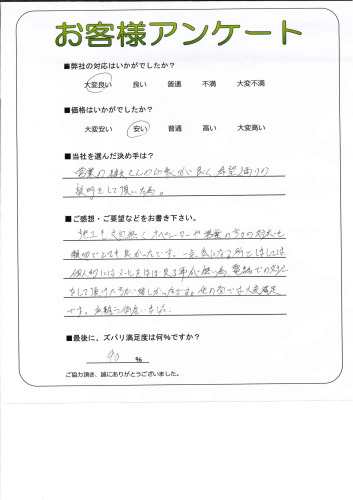 お客様アンケート
■弊社の対応はいかがでしたか？
大変良い 良い 普通 不満 大変不満
■価格はいかがでしたか？
大変安い 安い 普通 高い 大変高い
■当社を選んだ決め手は？
営業の さんの印象が良く、希望通りの
説明をして頂いた為。
■ご感想・ご要望などをお書き下さい。
施工も文句無く オペレーターや営業の方々の対応も
親切でとても良かったです。一点気になる所としましては
個人的には メールは 見る事が無い為、電話での対応
をして頂けた方が嬉しかったです。他の面では大変満足
です。お世話になりました。
■最後に、ズバリ満足度は何%ですか？
90 %
ご協力頂き、誠にありがとうございました。